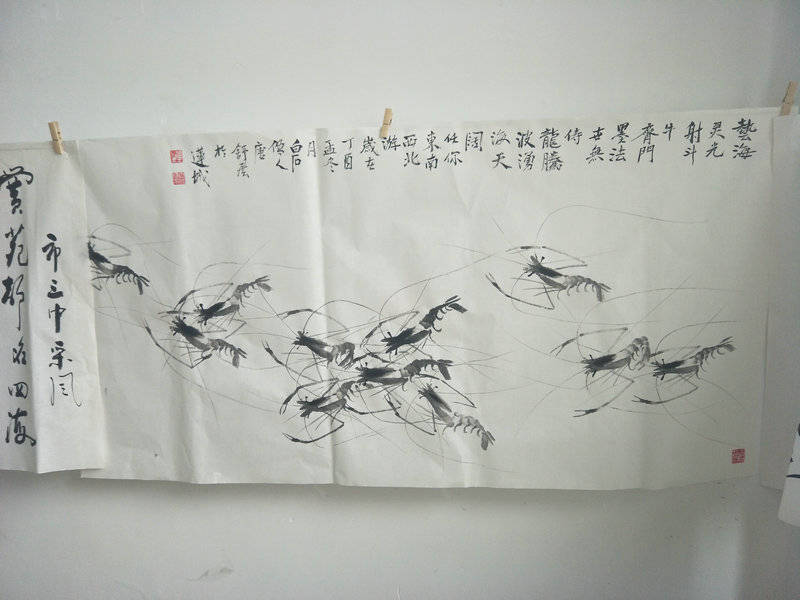 藝海
灵光
射斗
牛
齊門
墨法
世無
侍
龍騰
波湧
海天
闊
任你
東南
西北
游
歲在
丁酉
孟冬
月
白石
傳人
唐
舒
於
蓮城
市三中采风
苑 名四海